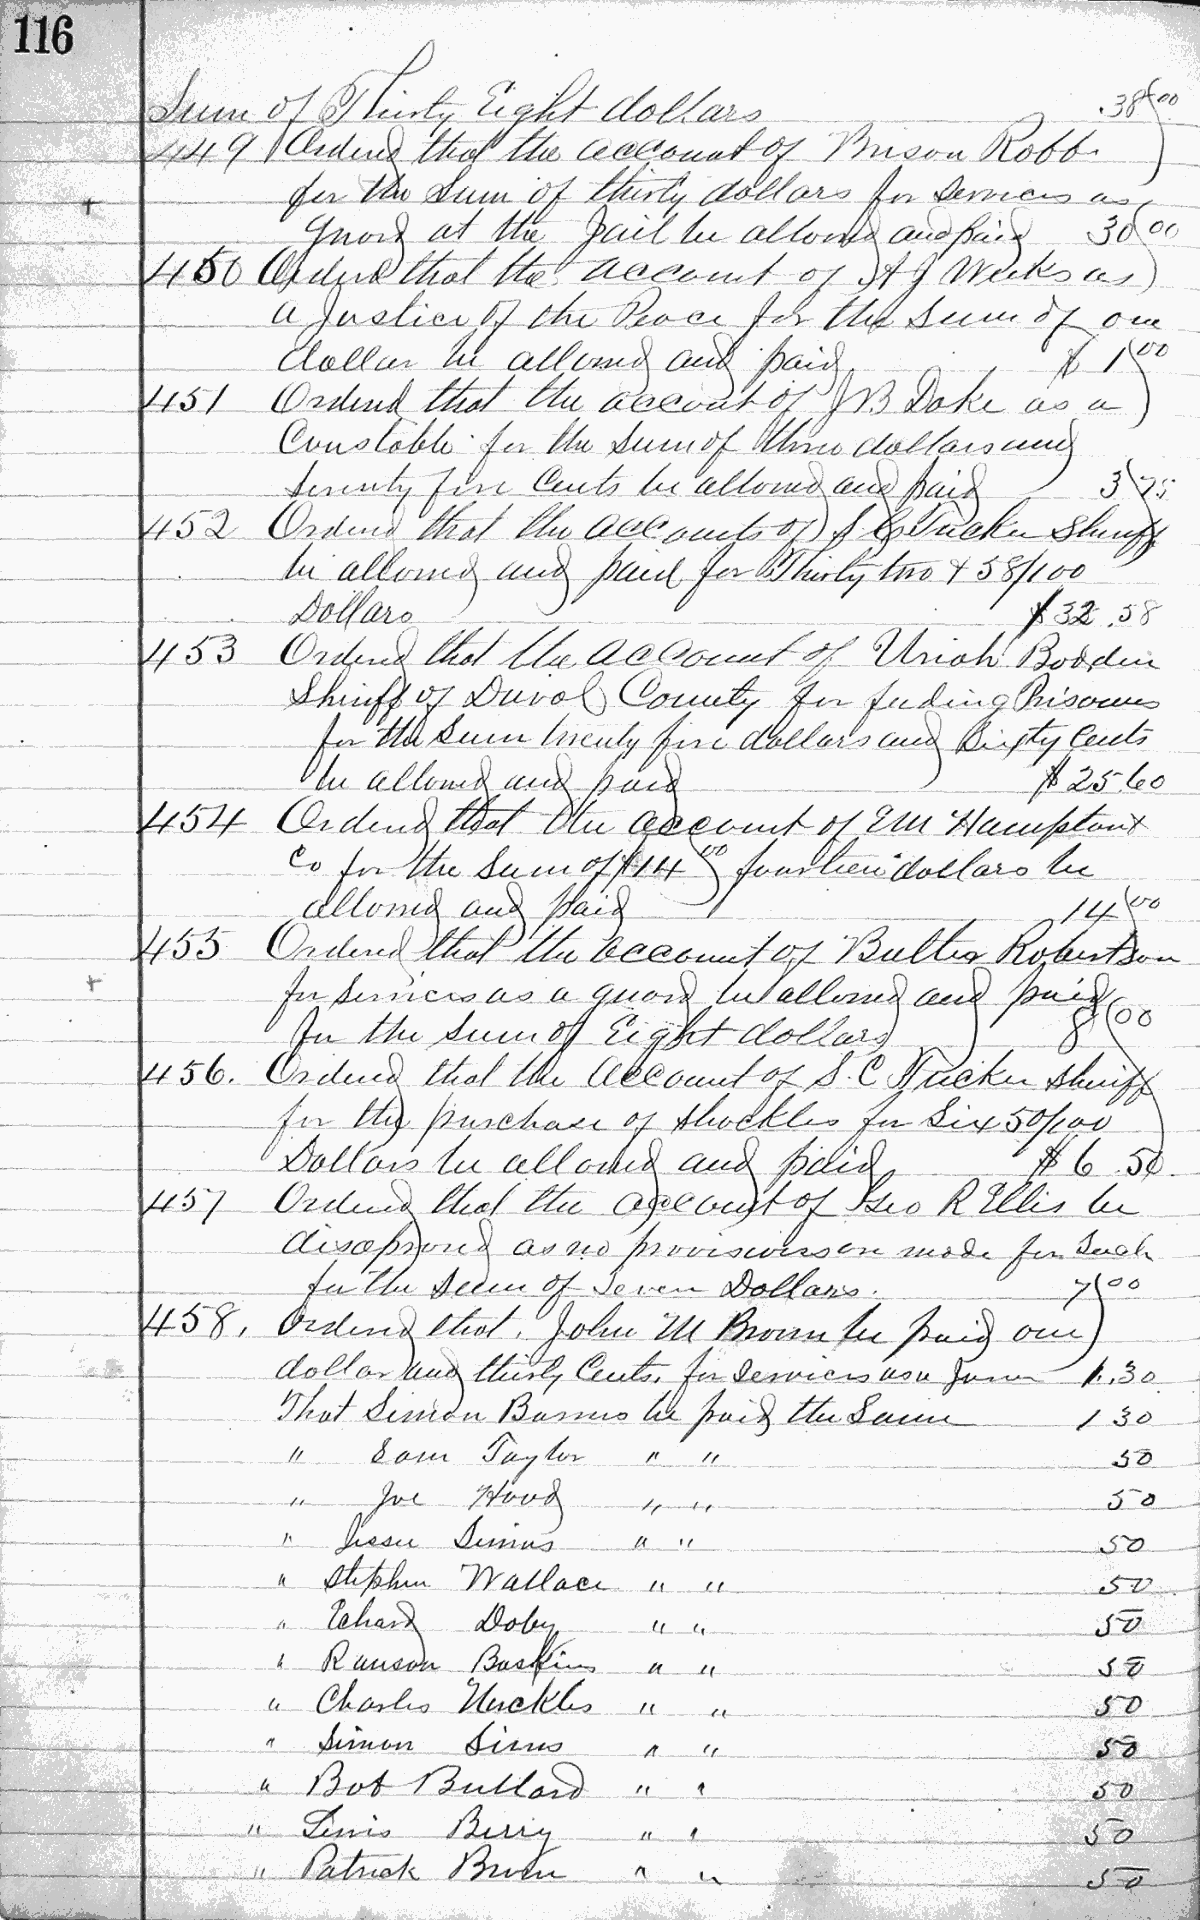 116
Sum of Thirty Eight dollars .38 00
449 Ordered that the account of Brison Robb
for the Sum of thirty dollars for services as
+ guard at the Jail be allowed and paid 30 00
450 Ordered that the account of A J Weeks as
a Justice of the Peace for the Sum of one
dollar be allowed and paid $ 1 00
451 Ordered that the account of J B Doke as a
Constable for the Sum of three dollars and
seventy five Cents be allowed and paid 3 75
452 Ordered that the accounts of S C Tucker Sheriff
be allowed and paid for Thirty two + 58/100
Dollars $32.58
453 Ordered that the account of Uriah Bowden
Sheriff of Duval County for feeding Prisoners
for the Sum twenty five dollars and Sixty Cents
be allowed and paid $25.60
454 Ordered that the account of E M Hampton +
Co for the Sum of $14 00 fourteen dollars be
allowed and paid 14 00
455 Ordered that the account of Butler Robertson
+ for services as a guard be allowed and paid
for the Sum of Eight dollars 8 00
456. Ordered that the account of S. C Tucker Sheriff
for the purchase of shackles for Six 50/100
Dollars be allowed and paid $6.50
457 Ordered that the account of Geo R Ellis be
disaproved as no made for Such
for the Sum of Seven Dollars. 7 00
458. Ordered that John M Brown be paid one
dollar and thirty Cents. for services as a Juror 1.30
That Simon Barnes be paid the Same 1 30
" Sam Taylor " " 50
" Joe Hood " " 50
" Jesse Simms " " 50
" Stephen Wallace " " 50
" Doby " " 50
" Ranson Baskins " " 50
" Charles Huckles " " 50
" Simon Sims " " 50
" Bob Bullard " " 50
" Lewis Berry " " 50
" Patrick Brown " " 50